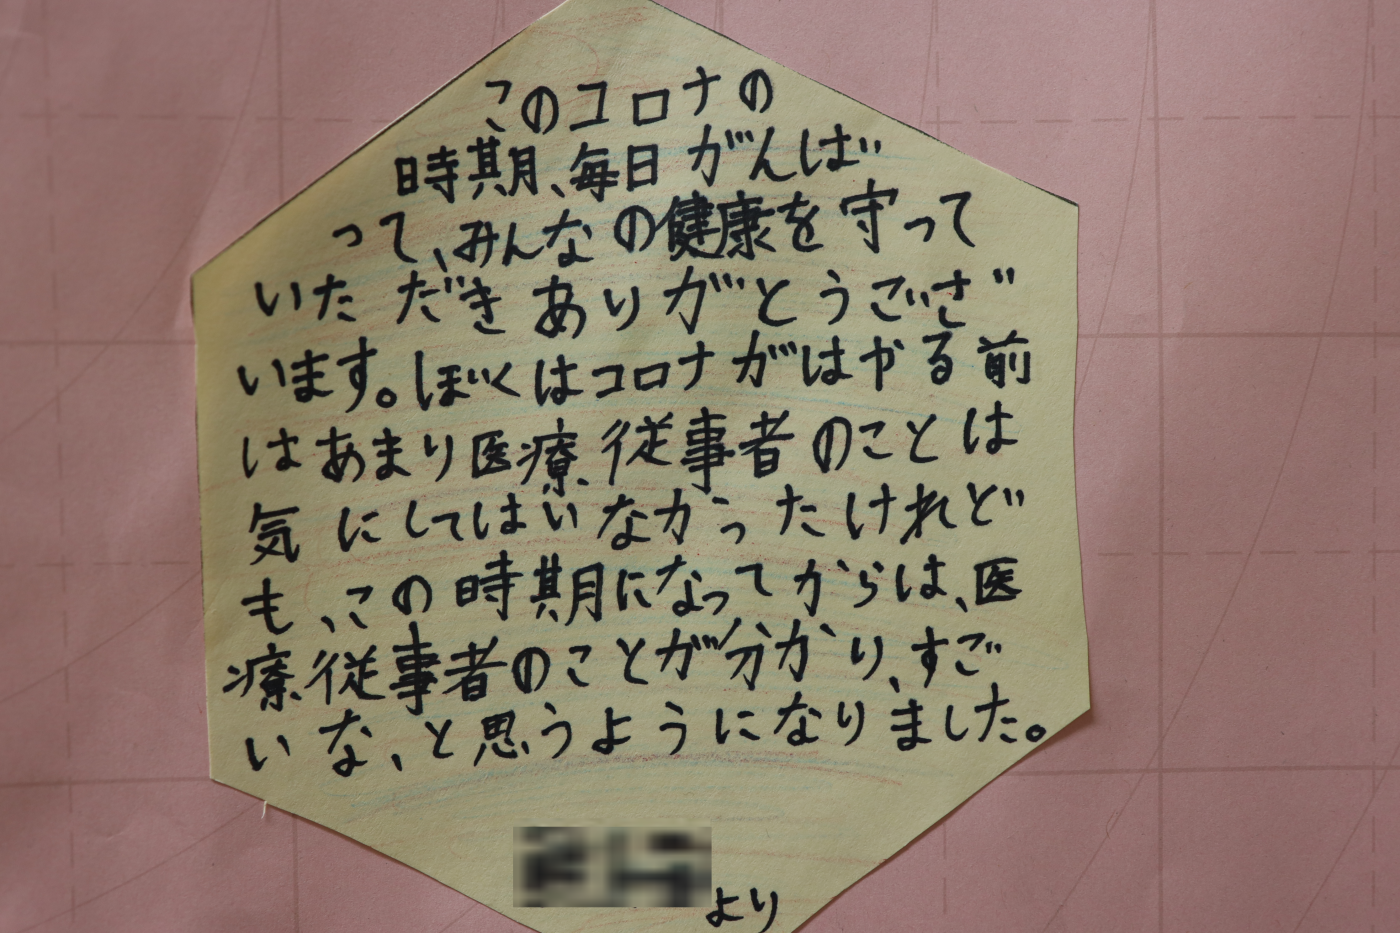 このコロナの
時期、毎日がんば
って、みんなの健康を守って
いただきありがとうござ
います。ぼくはコロナがはやる前
はあまり医療従事者のことは
気にしてはいなかったけれど
も、この時期になってからは、医
療従事者のことが分かり、すご
いな、と思うようになりました。
より